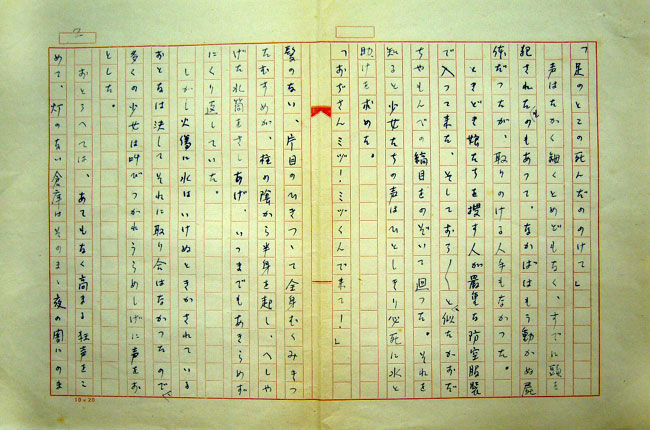 「足のとこの死んだの のけて」
声はたかく細くとめどもなく、すでに頭を
犯されたものもあって、なかばはもう動かぬ屍
体だったが、取りのける人手もなかった。
ときどき娘たちを捜す人が厳重な防空服装
で入って来た。そしておろおろと、似たかおだ
ちやもんぺの縞目をのぞいて廻った。それを
知ると少女たちの声はひとしきり必死に水と
助けを求めた。
「おぢさんミヅ！ミヅくんで来て！」
髪のない、片目のひきつって全身むくみきっ
たむすめが、柱の陰から半身を起し、へしゃ
げた水筒をさしあげ、いつまでもあきらめず
にくり返していた。
しかし火傷に水はいけぬときかされている
おとなは決してそれに取り合はなかったので、
多くの少女は叫びつかれうらめしげに声をお
とした。
おとろへては、あてもなく高まる狂声をこ
めて、灯のない倉庫はそのまゝ夜の闇にのま
2
10×20